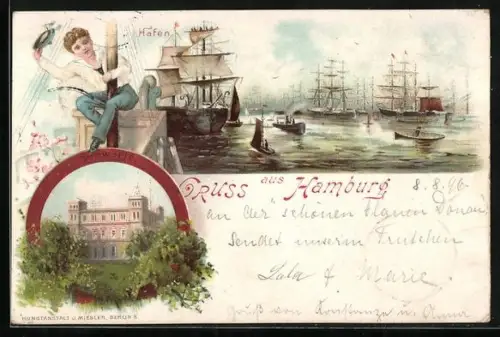 Hafen
Gruss aus Hamburg 8.8.96
an der schönen blauen Donau
Sendet unserm
Lola & Marie.
Gruß von Konstanze u. Anna
KUNSTANSTALT J. MIESLER, BERLIN S.